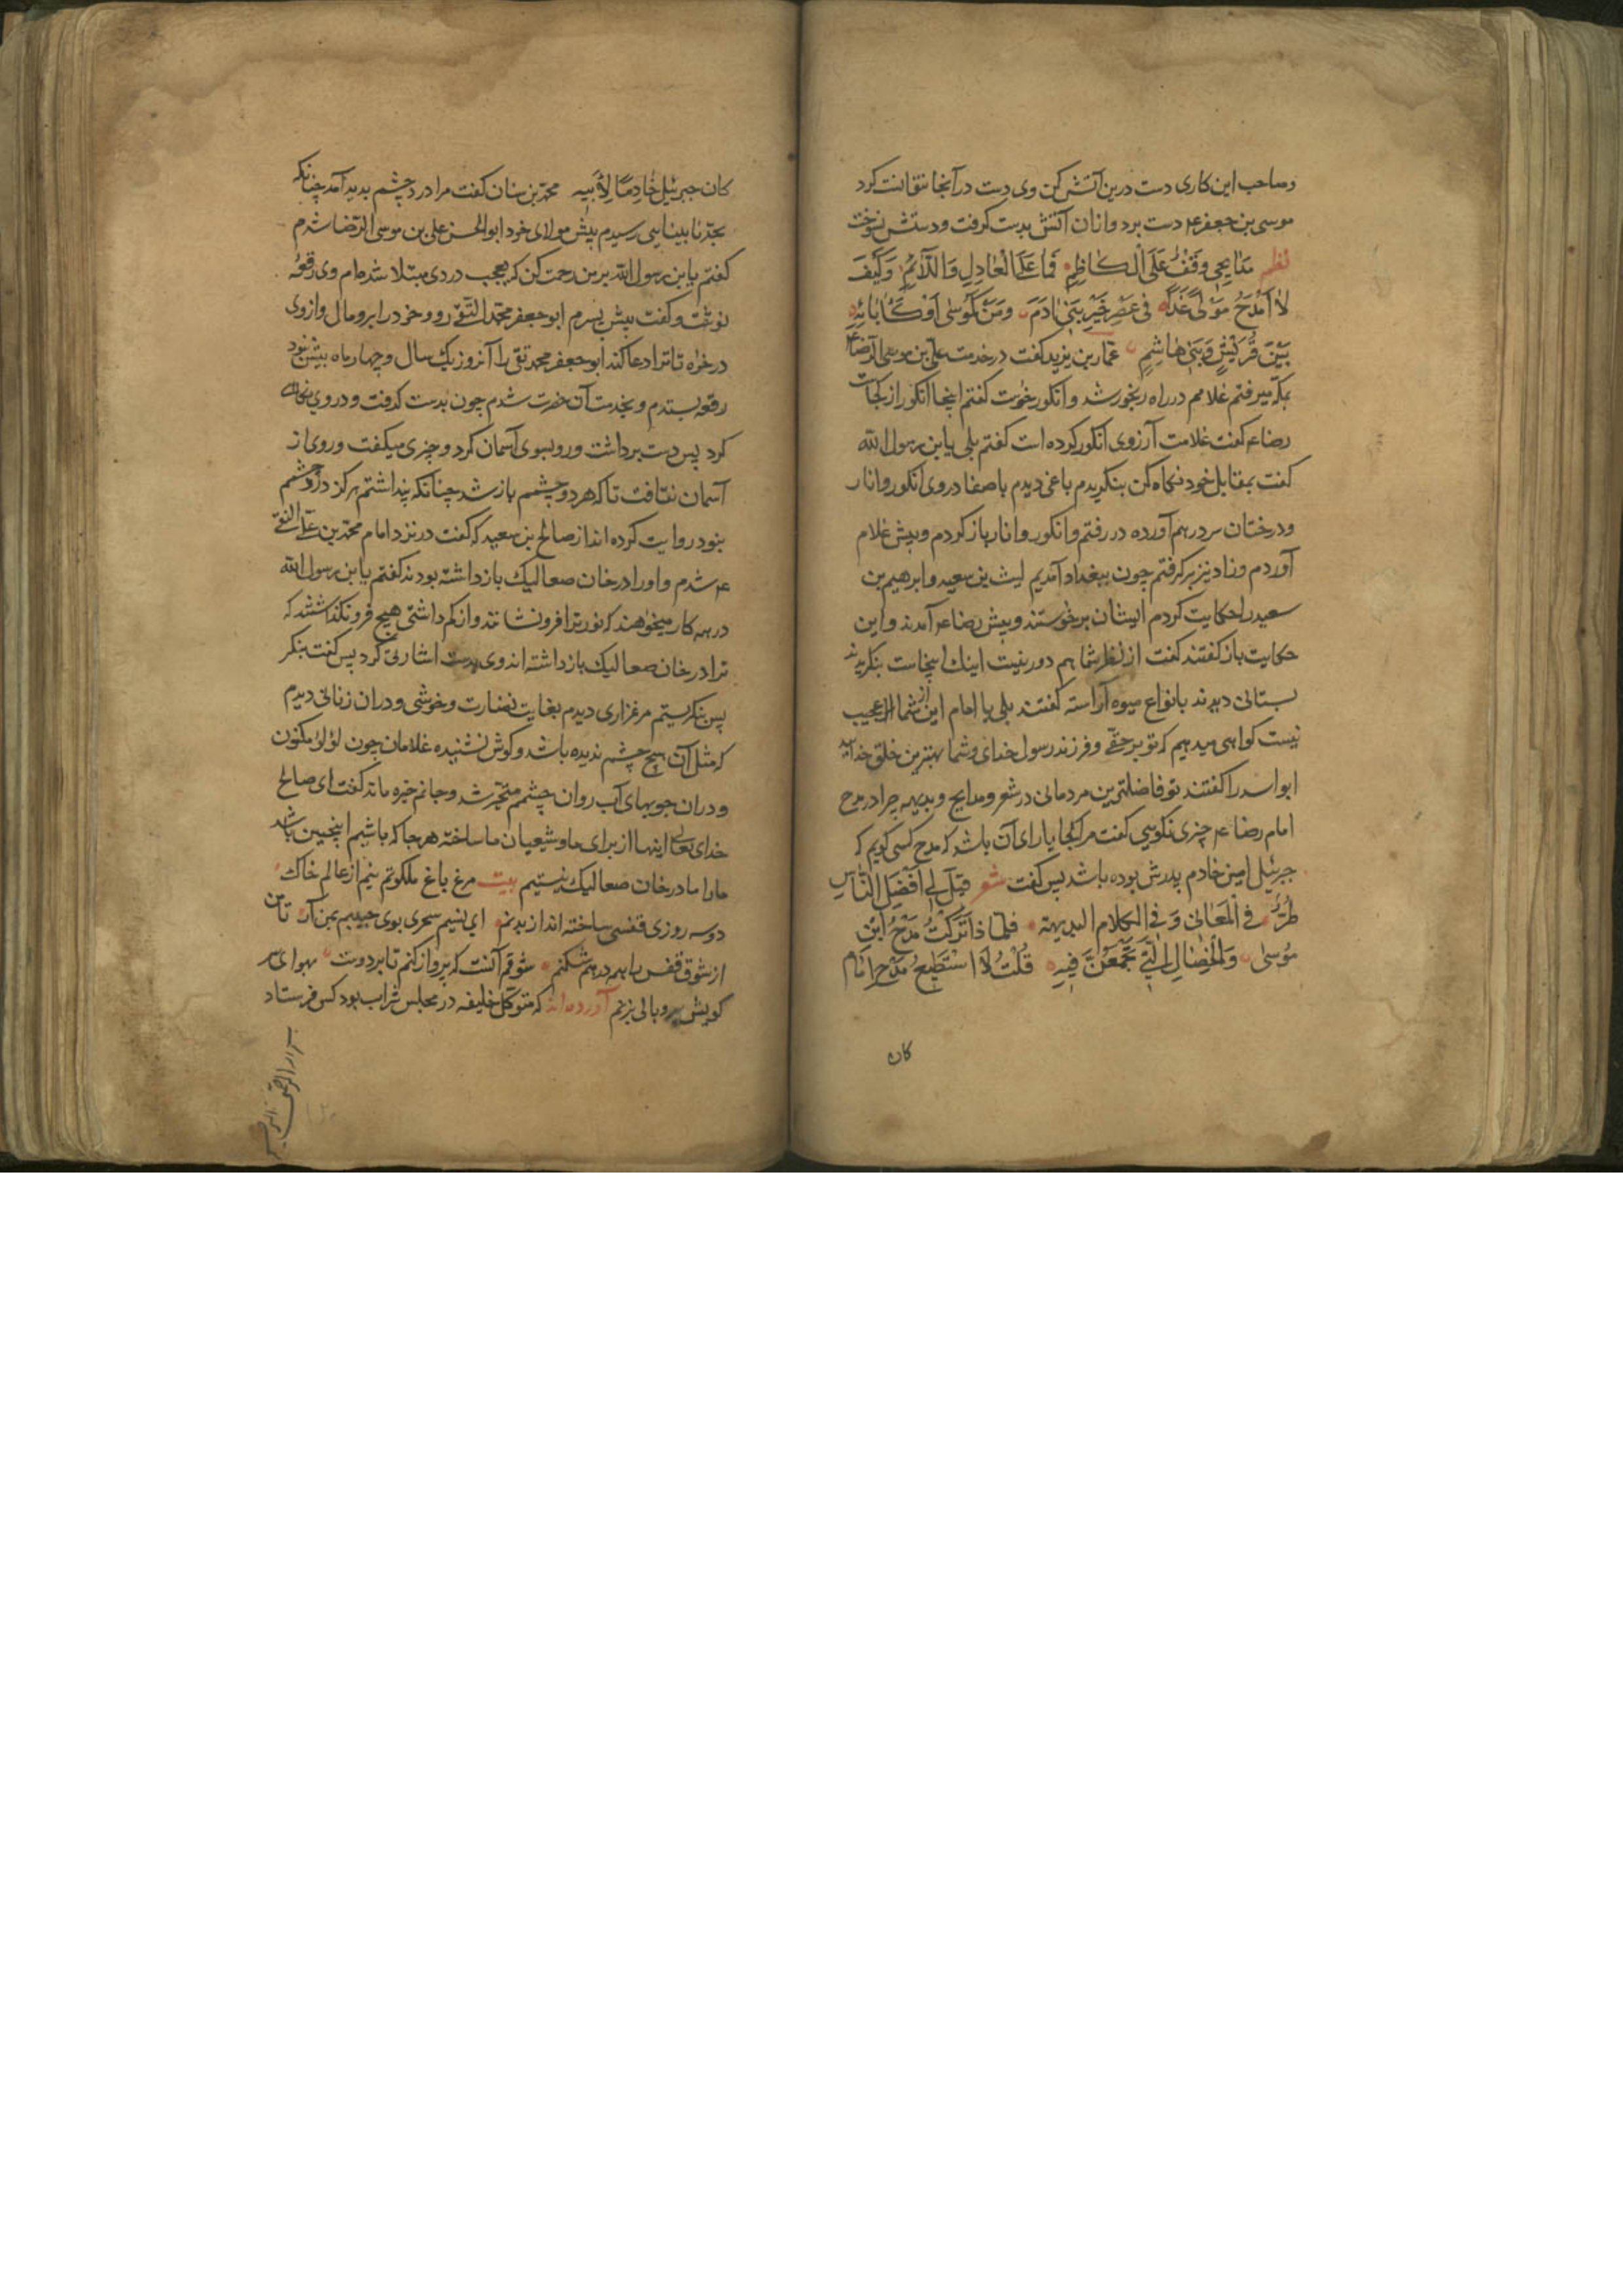 صاحب این کاری دست درین آتش کن وی دست در آنجا نتوانست کرد
موسی بن جعفر ع دست برد و ازان آتش بدست کرفت و دستش نسوخت
نظم مَدَایِحی وَقفٌ عَلَی الکاظِمِ فَمَا عَلَی العَاذِلِ وَاللَّائِمِ وَکَیفَ
لا اَمدَحُ مَولًی غَدَا فی عَصرِ خَیرِ بَنی ادَمَ وَمَن کَمُوسَی اَو کَآبَائِهِ
بَینَ قُرَیشٍ وَبَنی هَاشِمِ عمار بن یزید کفت در خدمت علی بن موسی الرضا ع
بمکه میرفتم غلامم در راه رنجور شد و انکور خوست کفتم اینجا انکور از کجاست
رضا ع کفت غلامت آرزوی انکور کرده است کفتم بلی یا بن رسول الله
کفت بمقابل خود نکاه کن بنکریدم باغی دیدم باصفا در وی انکور و انار
ودرختان سر درهم آورده در رفتم و انکور و انار باز کردم و پیش غلام
آوردم و زاد نیز برکرفتم چون ببغداد آمدیم لیث بن سعید و ابرهیم بن
سعید را حکایت کردم ایشان برخوستند و پیش رضا ع آمدند و این
حکایت باز کفتند کفت از نظر شما هم دور نیست اینک اینجاست بنکریدند
بستانی دیدند بانواع میوه آراسته کفتند بلی یا امام این از شما عجیب
نیست کواهی میدهیم که تو برحقی و فرزند رسول خدای وشما بهترین خلق خدااید
ابواسد را کفتند تو فاضلترین مردمانی در شعر و مدایح و بدیهه چرا در مدح
امام رضا ع چیزی نکویی کفت مرا کجا یارای آن باشد که مدح کسی کویم که
جبرئیل امین خادم پدرش بوده باشد پس کفت شعر قیلَ لِی اَفضَلُ النَّاسِ
طُرًّا فی المَعَانی وَفی الکلامِ البدیهة فَلِمَاذا تَرَکتُ مَدحَ ابنِ
مُوسَی وَالخِصَالِ الَّتی تَجَمَّعنَ فِیهِ قُلتُ لَا اَستَطِیعُ مَدحَ اِمَامٍ
کان
کان جبرئیل خَادِمًا لِاَبِیهِ محمد بن سنان کفت مرا درد چشم بدید آمد چنانکه
بحد نابینایی رسیدم پیش مولای خود ابوالحسن علی بن موسی الرضا شدم
کفتم یا بن رسول الله بر من رحمت کن که بعجب دردی مبتلا شده ام وی رقعه
نوشت و کفت پیش پسرم ابوجعفر محمد التقی رو و خود را برو مال و ازوی
درخواه تا ترا دعا کند ابوجعفر محمد تقی را آنروز یک سال و چهار ماه بیش نبود
رقعه بستدم و بخدمت آن حضرت شدم چون بدست کرفت و در وی نکاه
کرد پس دست برداشت و رو بسوی آسمان کرد و چیزی میکفت و روی از
آسمان نتافت تا که هر دو چشمم باز شد چنانکه پنداشتم هرکز درد چشمم
بنود روایت کرده اند از صالح بن سعید که کفت در نزد امام محمد بن علی النقی
ع شدم و او را در خان صعالیک بازداشته بودند کفتم یا بن رسول الله
در همه کار میخواهند که نور ترا فرونشانند و از کم داشتی هیچ فرونکذاشتند که
ترا در خان صعالیک بازداشته اند وی بدست اشارتی کرد پس کفت بنکر
پس بنکریستم مرغزاری دیدم بغایت نضارت و خوشی و دران زنانی دیدم
که مثل آن هیچ چشم ندیده باشد و کوش نشنیده غلامان چون لؤلؤ مکنون
و دران جویهای آب روان چشمم متحیر شد و جانم خیره ماند کفت ای صالح
خدای تعالی اینها از برای ما و شیعیان ما ساخته هرجا که باشیم اینچنین باشد
مارا ما در خان صعالیک نیستیم بیت مرغ باغ ملکوتم نیم از عالم خاک
دو سه روزی قفسی ساخته اند از بدنم ای نسیم سحری بوی حبیبم بمن آر تا من
از شوق قفس را همه درهم شکنم شوقم آنست که پرواز کنم تا بر دوست بهوای سر
کویش پر و بالی بزنم آورده اند که متوکل خلیفه در مجلس شراب بود کس فرستاد